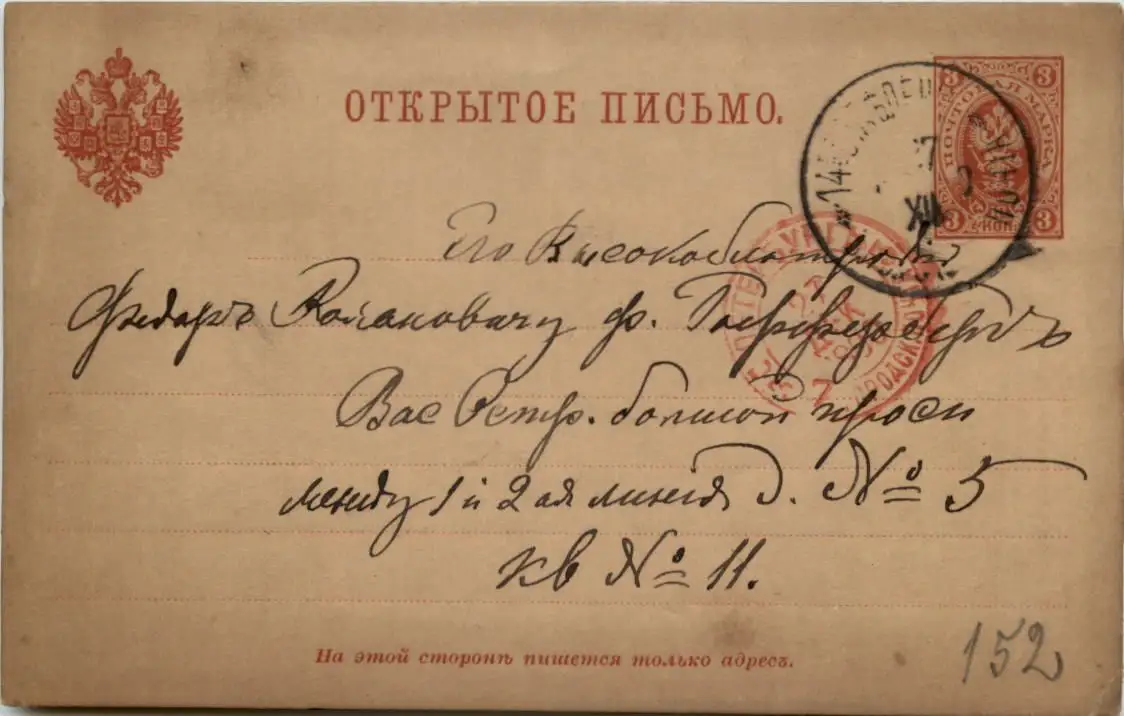 ОТКРЫТОЕ ПИСЬМО.
3 3
ПОЧТОВАЯ МАРКА
3 КОП. 3
XII
7
Его Высокоблагородію
Федоръ Романовичу ф.
Вас Остр. большой просп
между 1 и 2 ая линія д. № 5
кв № 11.
На этой сторонѣ пишется только адресъ.
152